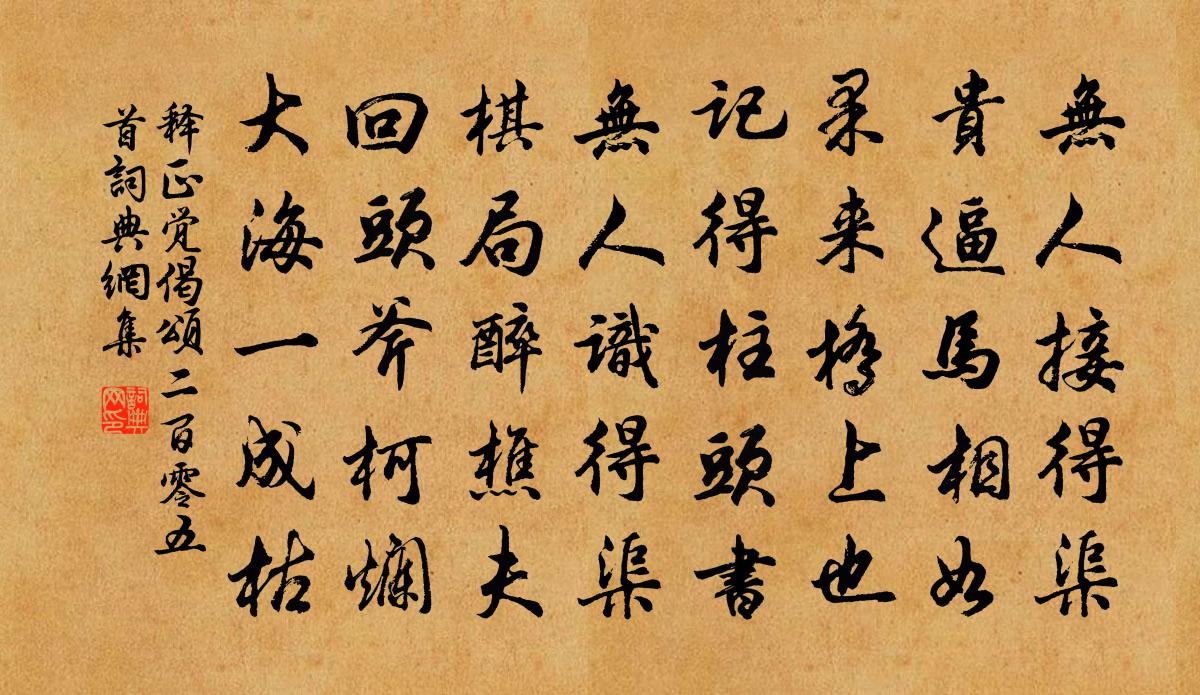 無人接得渠
貴逼馬相如
果来橋上也
記得柱頭書
無人識得渠
棋局醉樵夫
回頭斧柯爛
大海一成枯
释正覚偈頌二百零五
首詞典網集
詞典網印